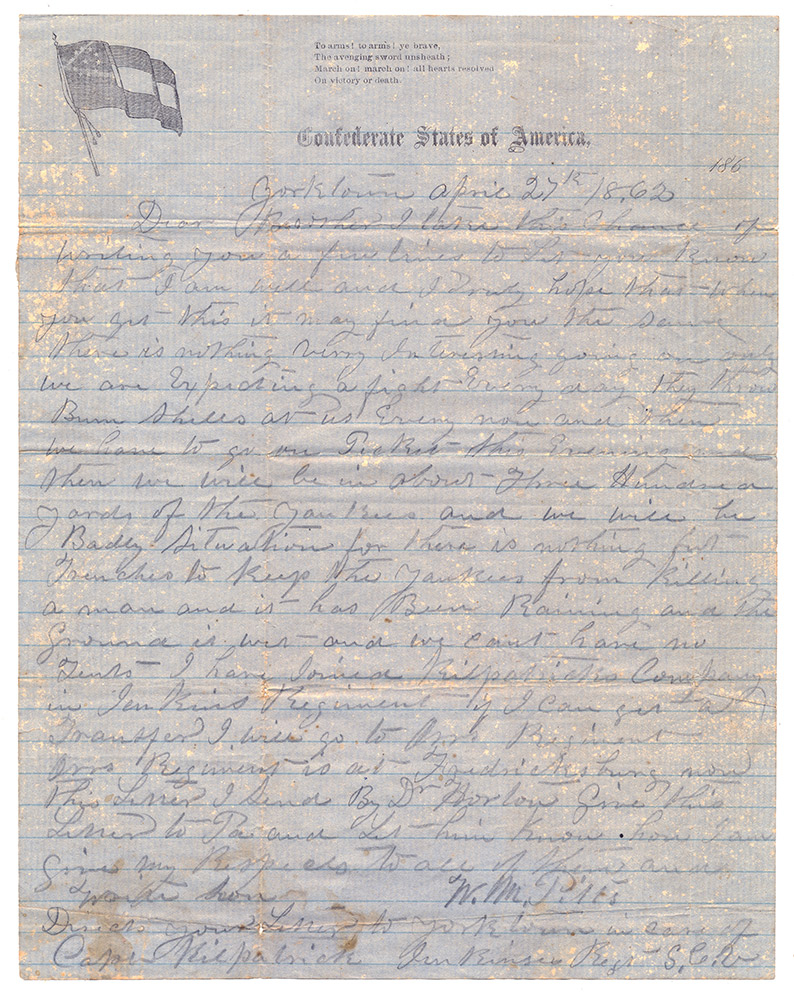 To arms! to arms! ye brave,
The avenging sword unsheath;
March on! march on! all hearts resolved
On victory or death.
Confederate States of America.
186
Yorktown april 27th 1862
Dear Brother I take this Chance of
writing you a few lines to Let you Know
that I am well and I truly hope that when
you get this it may find you the same
there is nothing very Interesting going on only
we are Expecting a fight Every day they throw
Bum Shells at us Every now and then
we have to go on Picket this Evening and
then we will be in about Three Hundred
yards of the yankees and we will be
Badly Situation for there is nothing but
Trenches to Keep the yankees from Killing
a man and it has Been Raining and the
ground is wet and we cant have no
Tents I have Joined Kilpatricks Company
in Jenkins Regiment if I can get a
Transfer I will go to Orrs Regiment
Orrs Regiment is at Fredricksburg now
this Letter I send By Dr Horton give this
Letter to Pa and Let him Know how I am
give my Respects to all of them and
write soon
W. M. Pitts
Direct your Letter to yorktown in care of
Capt Kilpatrick Jenkinses Regt S.C.V